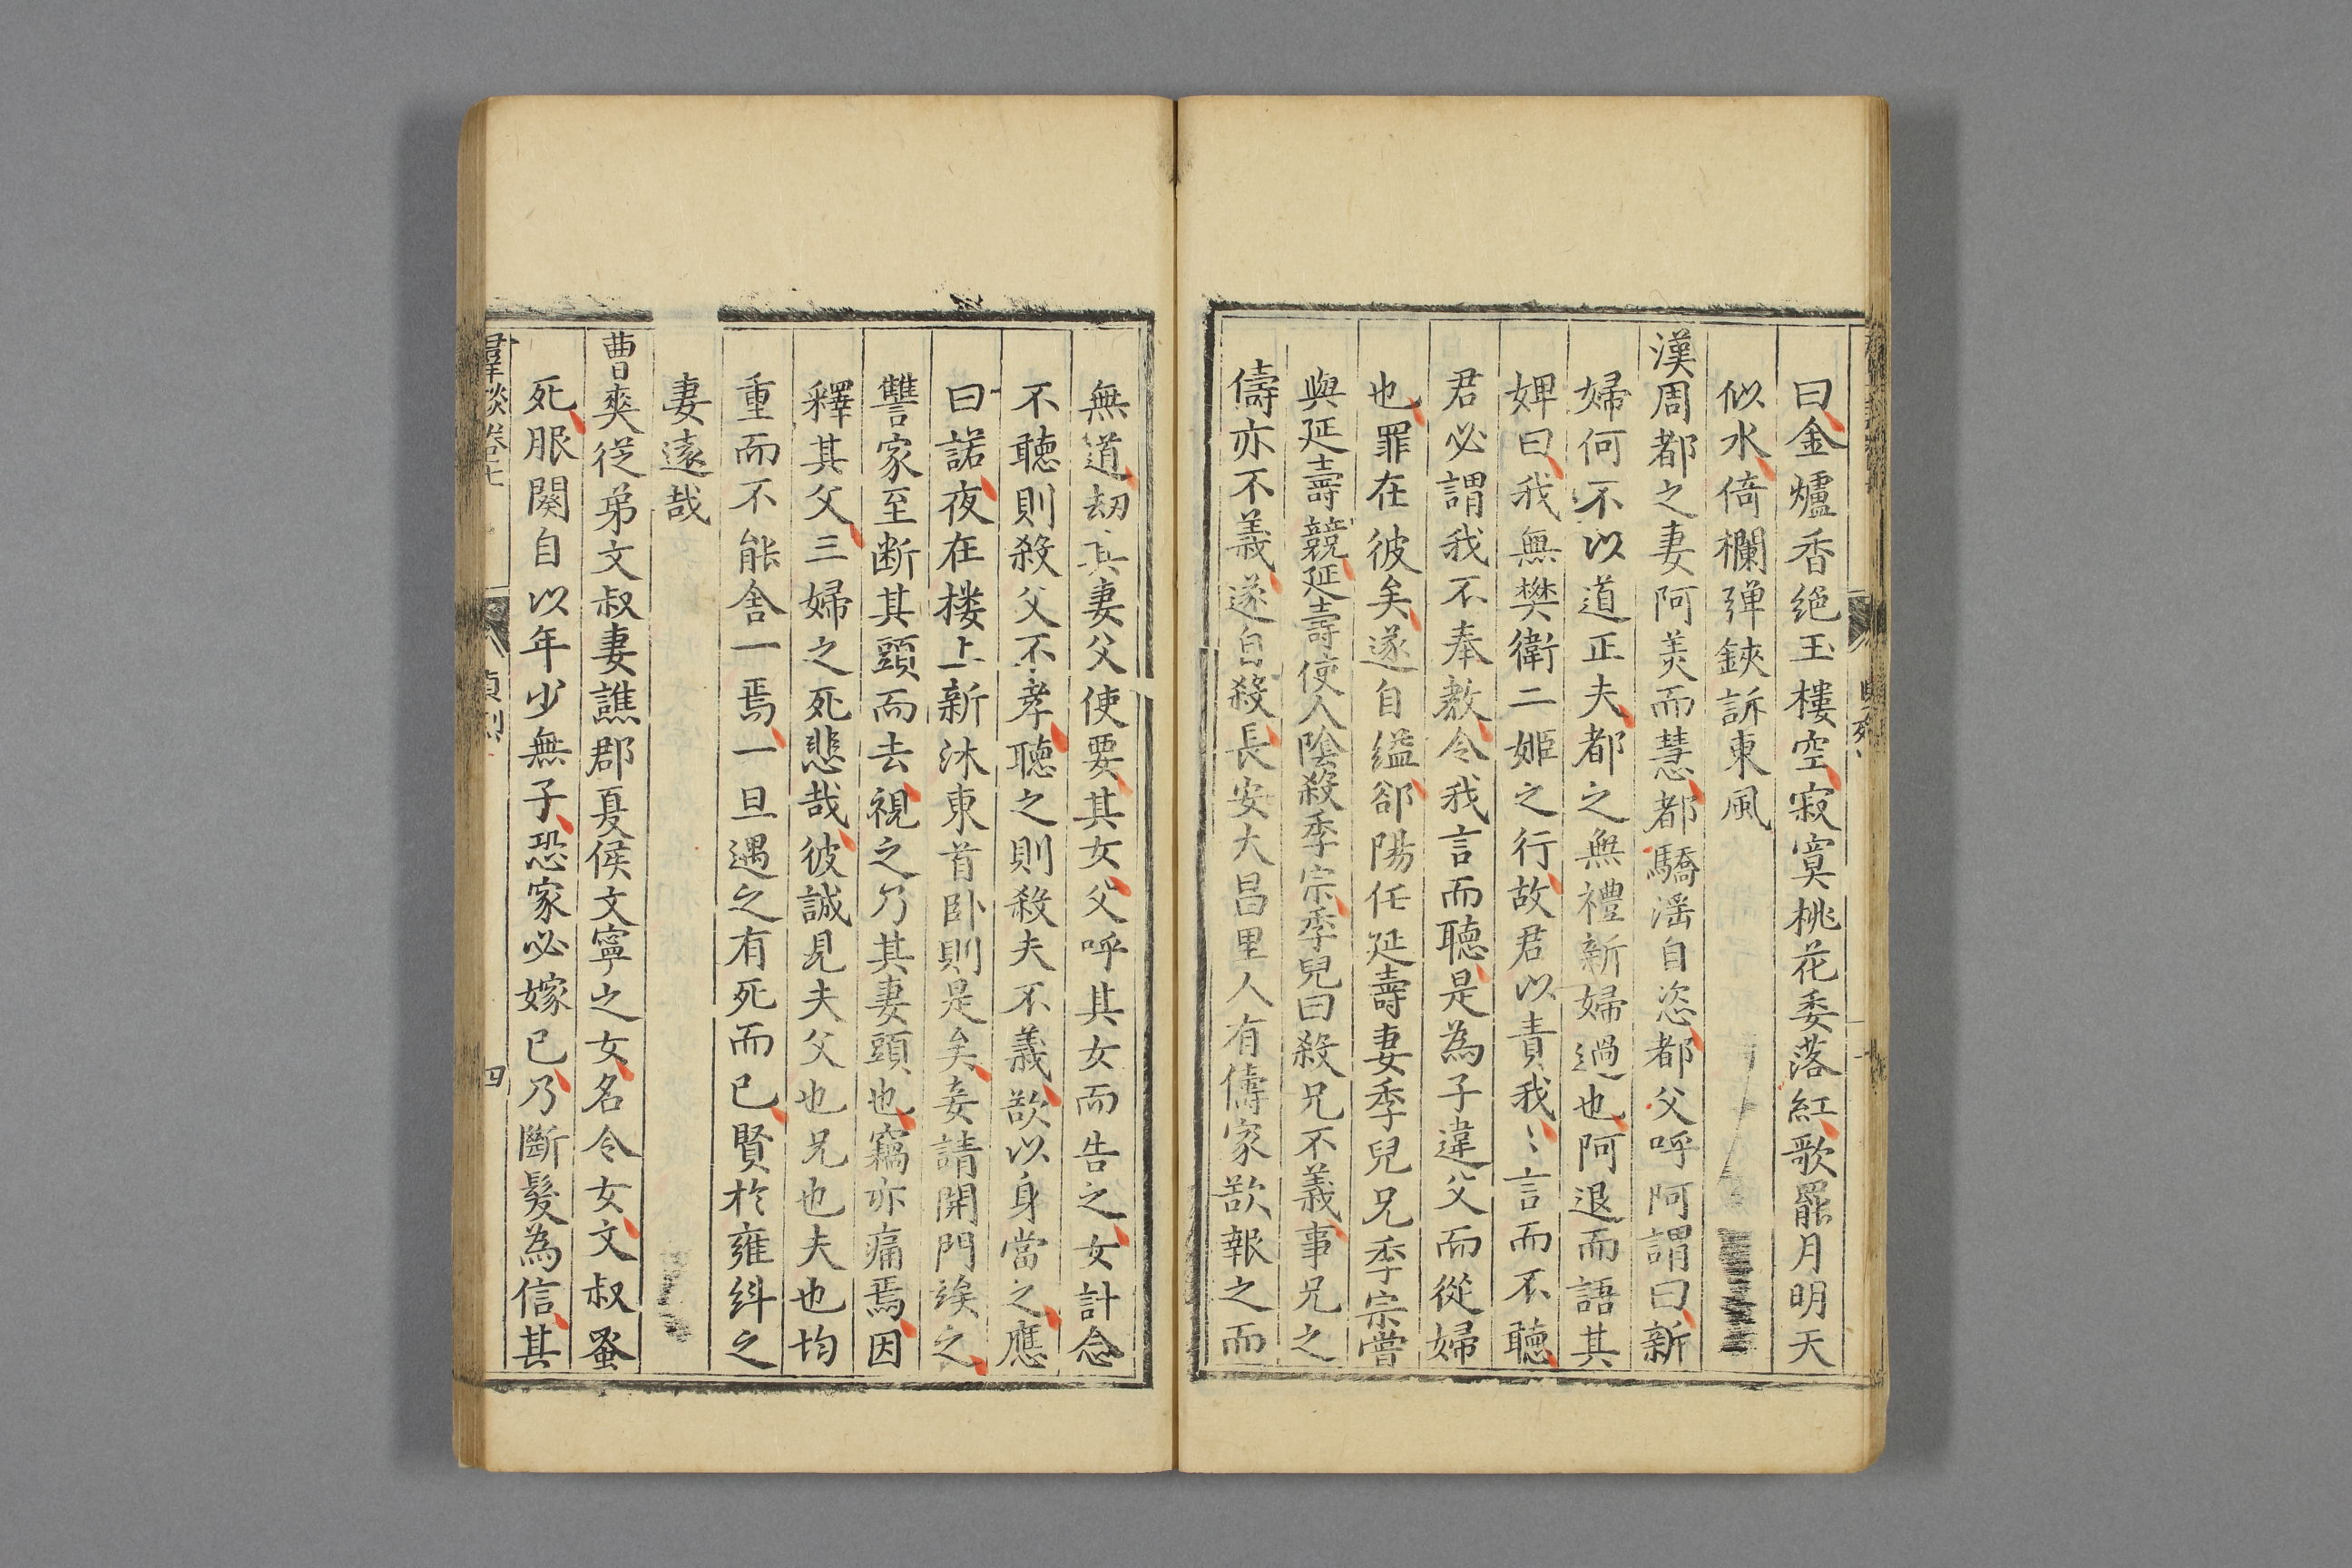 曰金爐香絕玉樓空寂寞桃花委落紅歌罷月明天
似水倚欄彈鋏訴東風
漢周都之妻阿美而慧都驕滛自恣都父呼阿謂曰新
婦何不以道正夫都之無禮新婦過也阿退而語其
婢曰我無樊衛二姬之行故君以責我〻言而不聽
君必謂我不奉教令我言而聽是為子違父而從婦
也罪在彼矣遂自縊郤陽任延壽妻季兒兄季宗嘗
與延壽競延壽使人陰殺季宗季兒曰殺兄不義事兄之
儔亦不義遂自殺長安大昌里人有儔家欲報之而
無道劫其妻父使要其女父呼其女而告之女計念
不聽則殺父不孝聽之則殺夫不義欲以身當之應
曰諾夜在楼上新沐東首卧則是矣妾請開門俟之
讐家至断其頭而去視之乃其妻頭也竊亦痛焉因
釋其父三婦之死悲哉彼誠見夫父也兄也夫也均
重而不能舍一焉一旦遇之有死而已賢於雍糾之
妻遠哉
曹爽從弟文叔妻譙郡夏侯文寧之女名令女文叔蚤
死服闋自以年少無子恐家必嫁已乃斷髮為信其
羣談卷七 貞烈 四